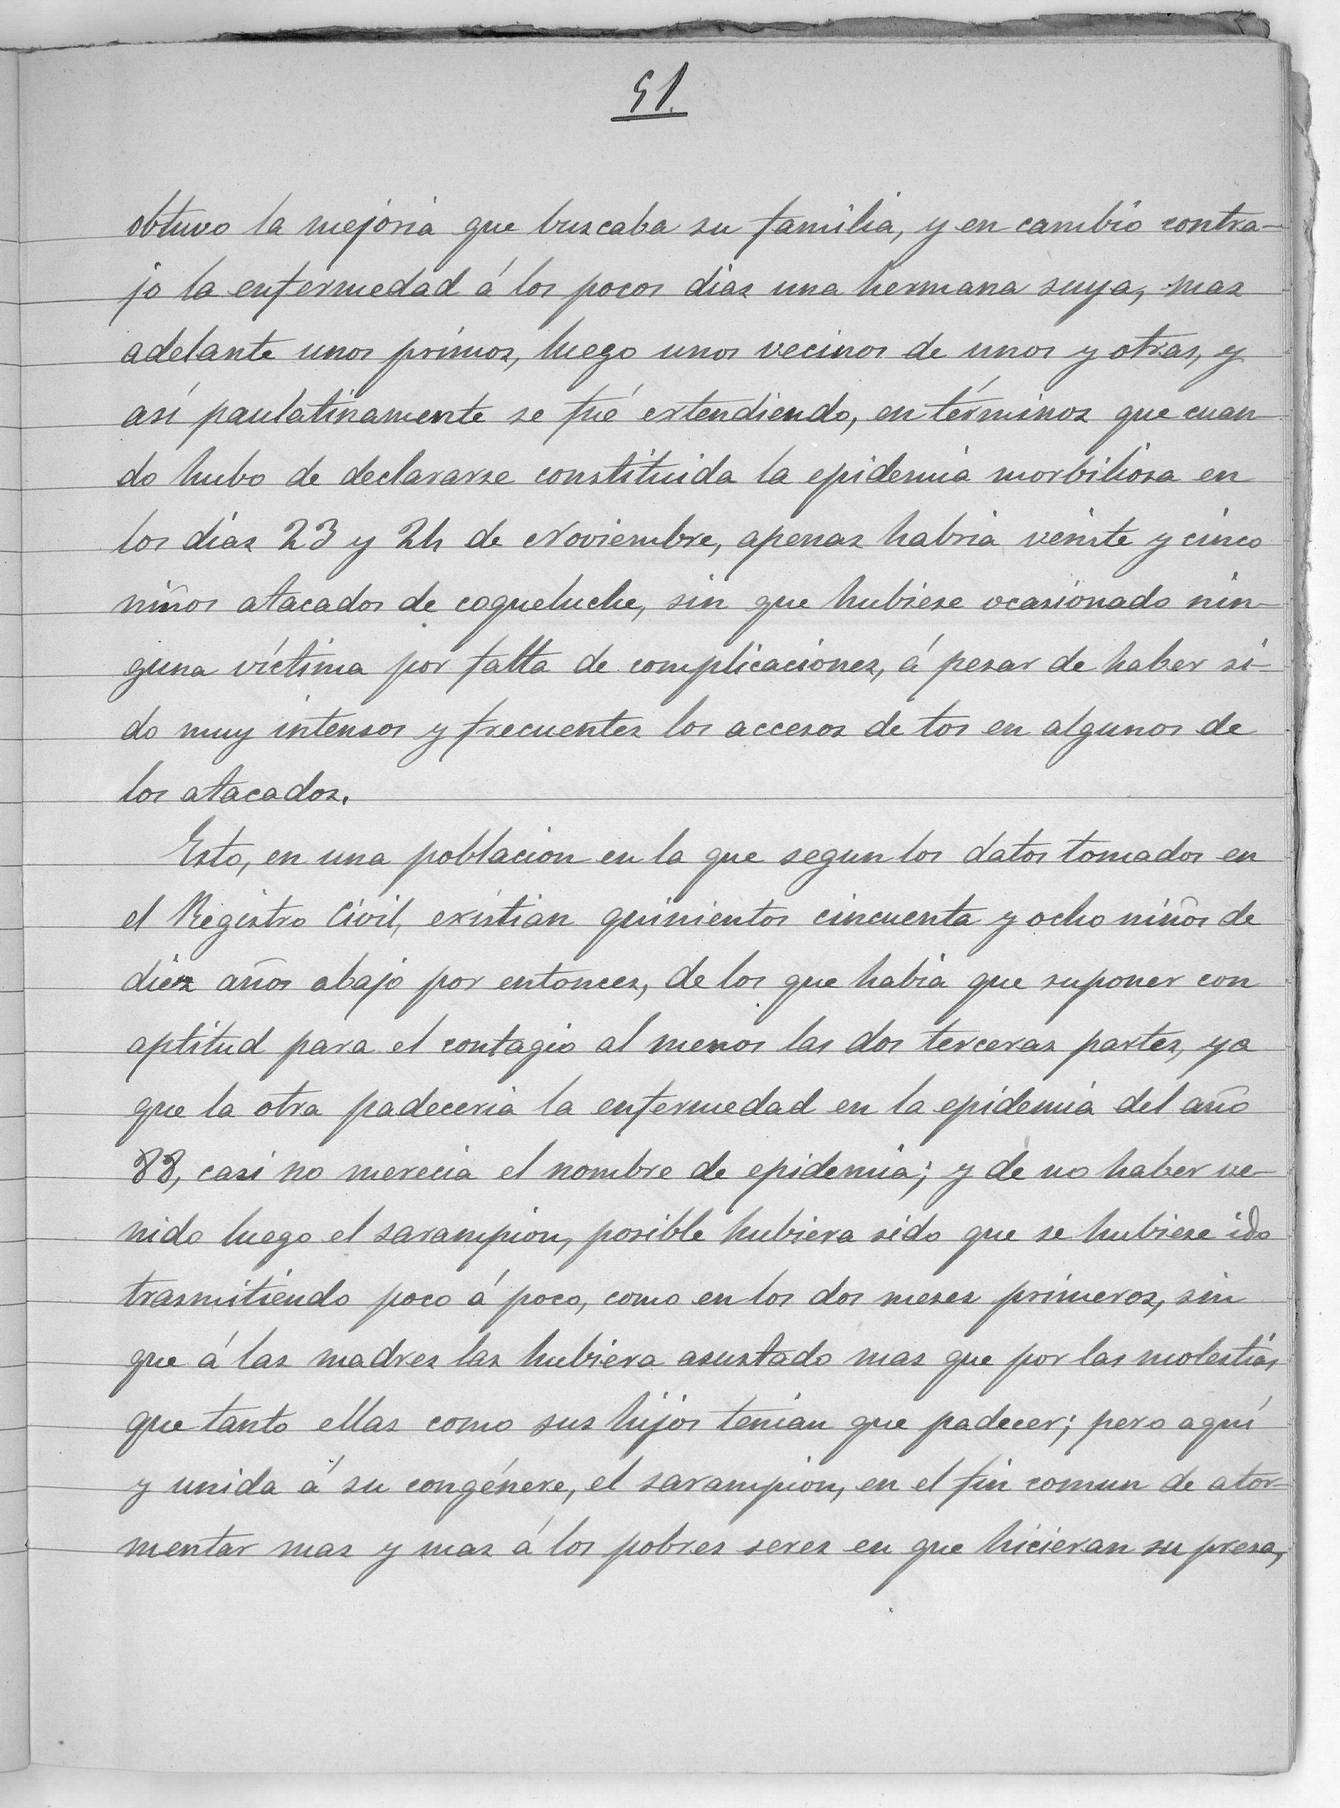 51.
obtuvo la mejoria que buscaba su familia, y en cambio contra-
jo la enfermedad á los pocos dias una hermana suya, mas
adelante unos primos, luego unos vecinos de unos y otras, y
así paulatinamente se fué extendiendo, en términos que cuan
do hubo de declararse constituida la epidemia morbiliosa en
los dias 23 y 24 de Noviembre, apenas habria veinte y cinco
niños atacados de coqueluche, sin que hubiese ocasionado nin-
guna víctima por falta de complicaciones, á pesar de haber si-
do muy intensos y frecuentes los accesos de tos en algunos de
los atacados.
Esto, en una poblacion en la que segun los datos tomados en
el Registro Civil, existian quinientos cincuenta y ocho niños de
diez años abajo por entonces, de los que habia que suponer con
aptitud para el contagio al menos las dos terceras partes, ya
que la otra padeceria la enfermedad en la epidemia del año
88, casi no merecia el nombre de epidemia; y de no haber ve-
nido luego el sarampion, posible hubiera sido que se hubiese ido
trasmitiendo poco á poco, como en los dos meses primeros, sin
que á las madres las hubiera asustado mas que por las molestias
que tanto ellas como sus hijos tenian que padecer; pero aquí
y unida á su congénere, el sarampion, en el fin comun de ator-
mentar mas y mas á los pobres seres en que hicieran su presa,